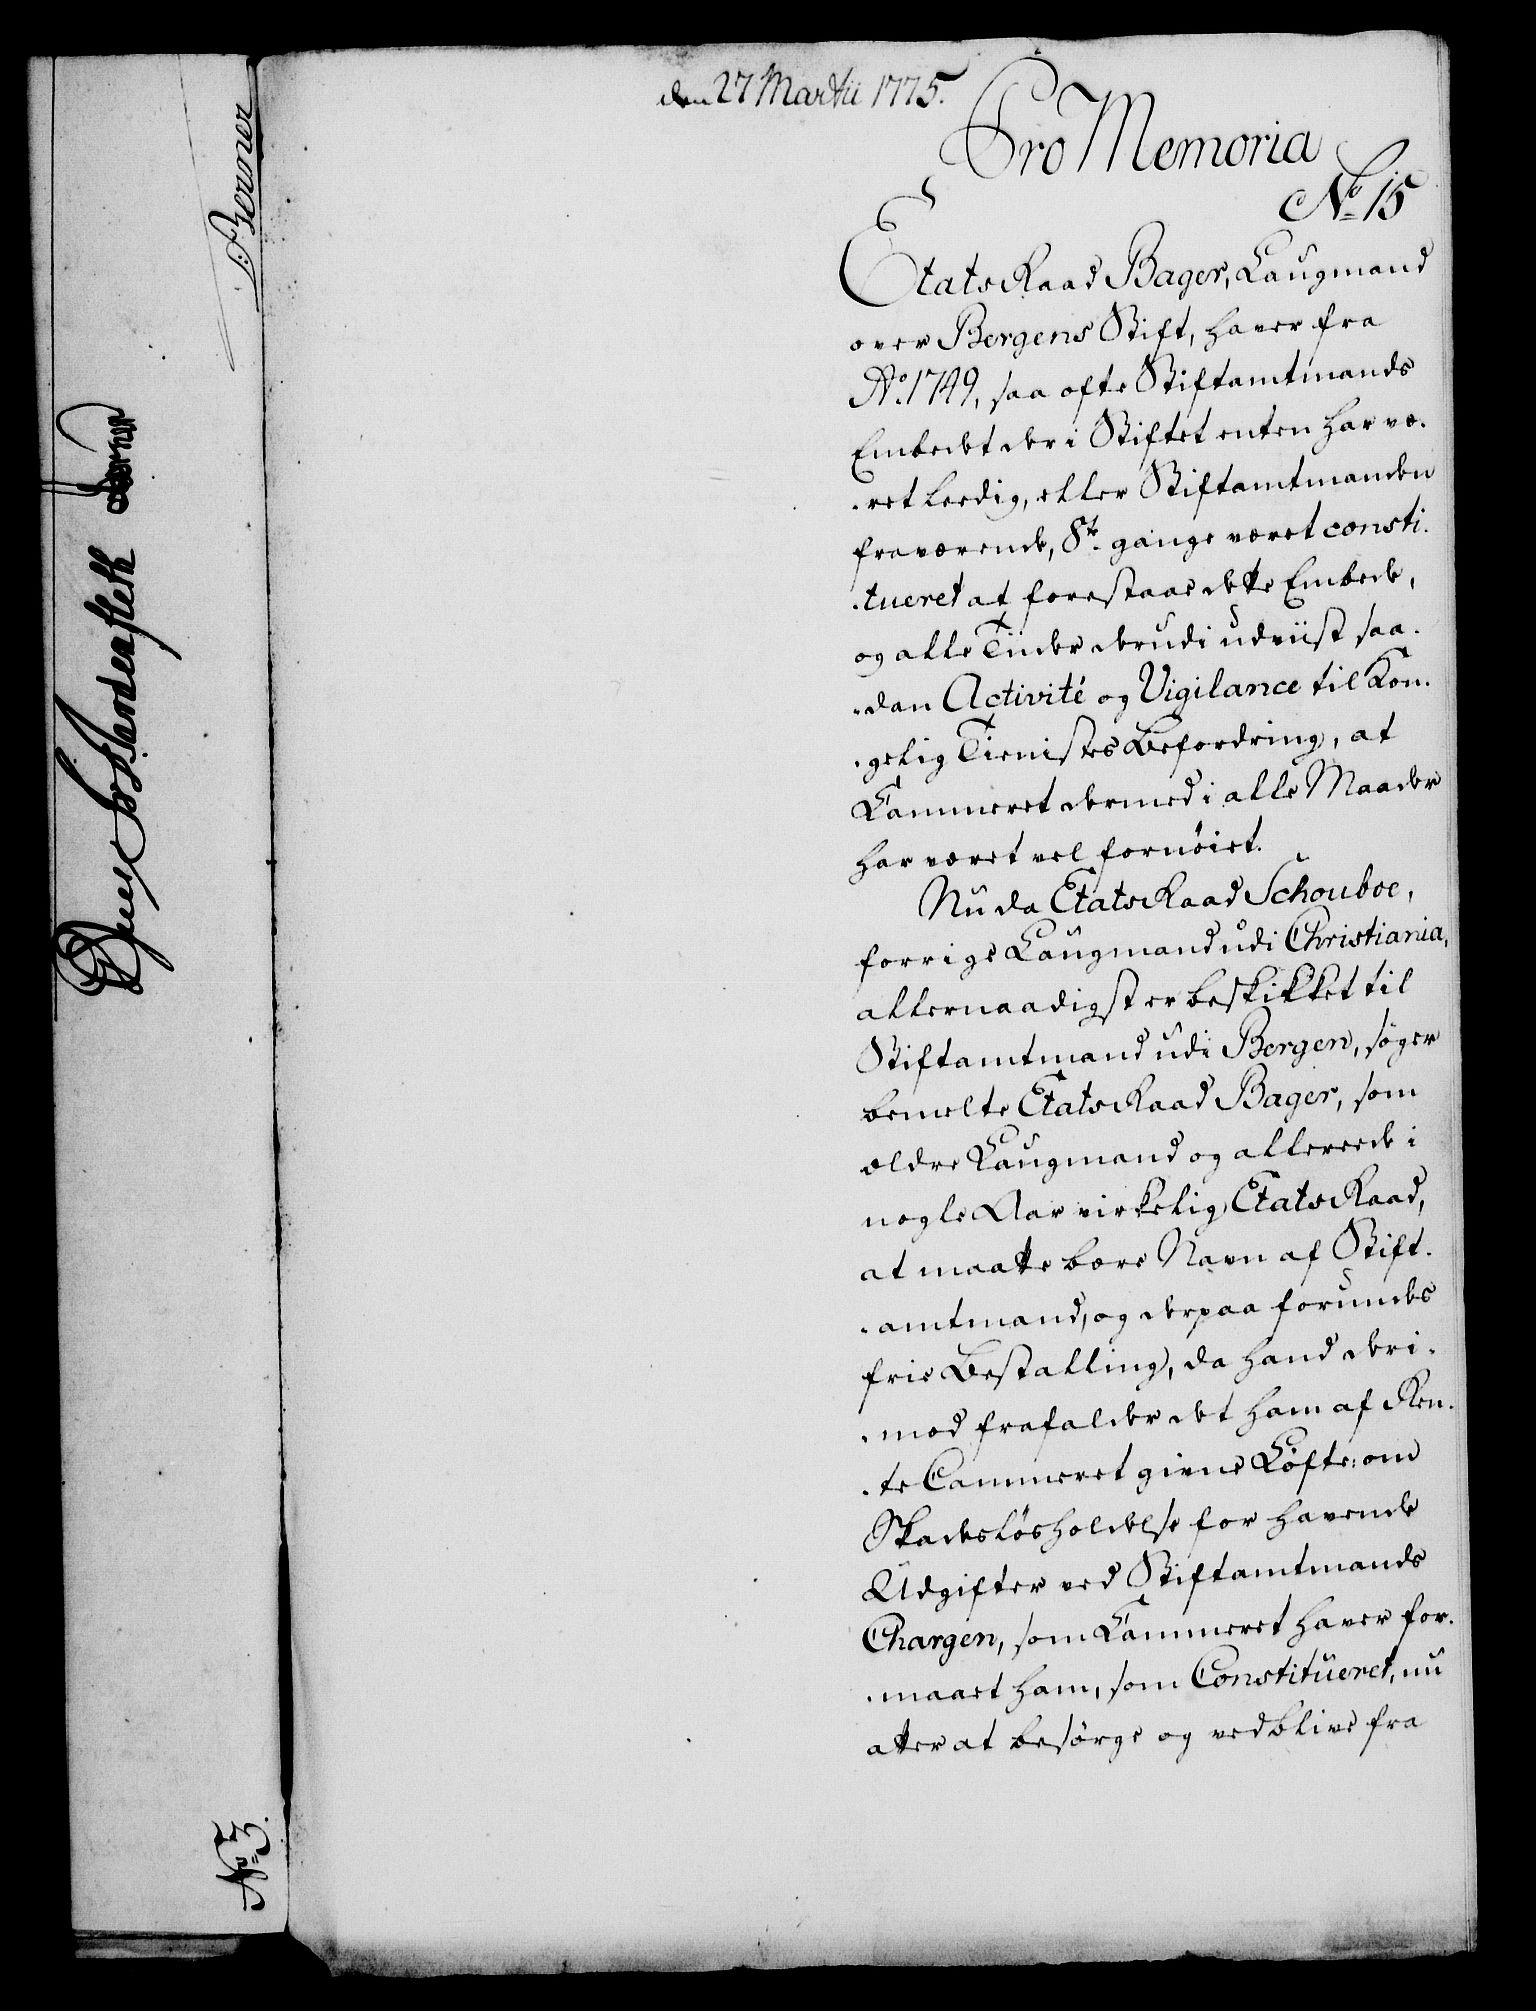 den 27 Martii 1775.
Pro Memoria
No 15
EtatsRaad Bager, Laugmand
over Bergens Stift, haver fra
Ao. 1749, saa ofte Stiftamtmands
Embedet der i Stiftet enten har væ-
-ret leedig, eller Stiftamtmanden
fraværende, 8te gange været consti-
-tueret at forestaae dette Embede,
og alle Tiider derudi udviist saa-
-dan Activité og Vigilance til Kon-
-gelig Tienistes Befordring, at
Cammeret dermed i alle Maader
har været vel fornöiet.
Nu da EtatsRaad Schouboe,
forrige Laugmand udi Christiania,
allernaadigst er beskikket til
Stiftamtmand udi Bergen, söger
bemelte EtatsRaad Bager, som
ældre Laugmand og allereede i
nogle Aar virkelig EtatsRaad,
at maatte bære Navn af Stift-
-amtmand, og derpaa forundes
frie Bestalling, da hand deri-
-mod frafalder det ham af Ren-
-te Cammeret givne Löfte om
Skadeslösholdelse for havende
Udgifter ved Stiftamtmands
Chargen, som Cammeret haver for-
-maaet ham, som Constitueret, nu
atter at besörge og vedblive fra
Berner
No 3.